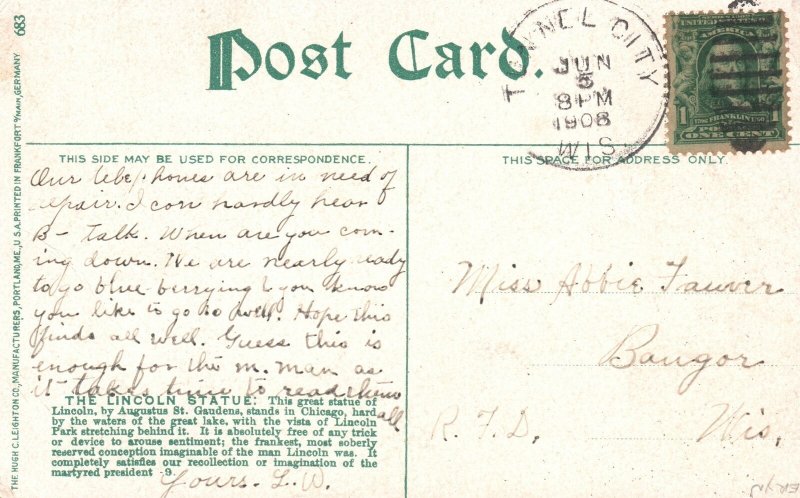 Post Card.
683
THE HUGH C. LEIGHTON CO., MANUFACTURERS, PORTLAND, ME., U.S.A. PRINTED IN FRANKFORT o/MAIN, GERMANY
TUNNEL CITY
JUN
5
8 PM
1908
WIS
UNITED STATES OF
AMERICA
1 FRANKLIN 1
ONE CENT
THIS SIDE MAY BE USED FOR CORRESPONDENCE.
Our telephones are in need of
repair. I can hardly hear
B- talk. When are you com-
ing down. We are nearly ready
to go blue berrying & you know
you like to go so well. Hope this
finds all well. Guess this is
enough for the m. man as
it takes time to read them
all
Yours. L. W.
THE LINCOLN STATUE: This great statue of
Lincoln, by Augustus St. Gaudens, stands in Chicago, hard
by the waters of the great lake, with the vista of Lincoln
Park stretching behind it. It is absolutely free of any trick
or device to arouse sentiment; the frankest, most soberly
reserved conception imaginable of the man Lincoln was. It
completely satisfies our recollection or imagination of the
martyred president -9.
THIS SPACE FOR ADDRESS ONLY.
Miss Abbie Fauver
Bangor
R. F. D. Wis.